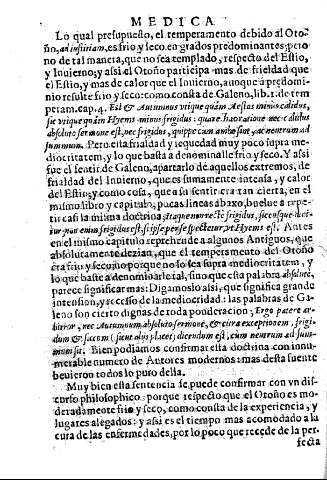 MEDICA
Lo qual presupuesto, el temperamento debido al Otoño
, ad iustitiam, es frio y seco en grados predominantes; pero
no de tal manera, que no sea templado, respecto del Estio,
y Inuierno; y assi el Otoño participa mas de frieldad que
el Estio, y mas de calor que el Inuierno, aunque à predominio
resulte frio y seco: como consta de Galeno, lib. 1. de temperam.
cap. 4. Est & Autumnus vtique quàm Aestas minùs calidus,
sic vtique quàm Hyems minùs frigidus: quare hac ratione nec calidus
absoluto sermone est, nec frigidus, quippe cum ambo sint, ac neutrum ad
summum. Pero esta frialdad y sequedad muy poco supra mediocritatem,
y lo que basta à denominalle frio y seco. Y assi
fue el sentir de Galeno, apartarlo de aquellos extremos, de
frialdad del Inuierno, que es sumamente intensa, y calor
del Estio; y como esta, que a su sentir era tan cierta, en el
mismo libro y capitulo, pocas lineas abaxo, buelue à repetir
casi la misma doctrina;
est, si ipse per se spectetur, vt Hyems est. Antes
en el mismo capitulo reprehende a algunos Antiguos, que
absolutamente dezian, que el temperamento del Otoño
era frio y seco, no porque no lo sea supra mediocritatem, y
lo que baste a denominarle tal, sino que esta palabra absoluté,
parece significar mas: Digamoslo assi, que significa grande
intension, y excesso de la mediocridad: las palabras de Galeno
son cierto dignas de toda ponderacion; Ergo parcè arbitror,
nec Autumnum absoluto sermone, & citra exceptionem, frigidum
& siccum (sicut alijs placet) dicendum est, cum neutrum ad summum
sit. Bien podiamos confirmar esta doctrina con innumerable
numero de Autores modernos: mas desta fuente
beuieron todos lo puro della.
Muy bien esta sentencia se puede confirmar con vn discurso
philosophico: porque respecto que el Otoño es moderadamente
frio y seco, como consta de la experiencia, y
lugares alegados: y assi es el tiempo mas acomodado a la
cura de las enfermedades, por lo poco que recede de la perfecta